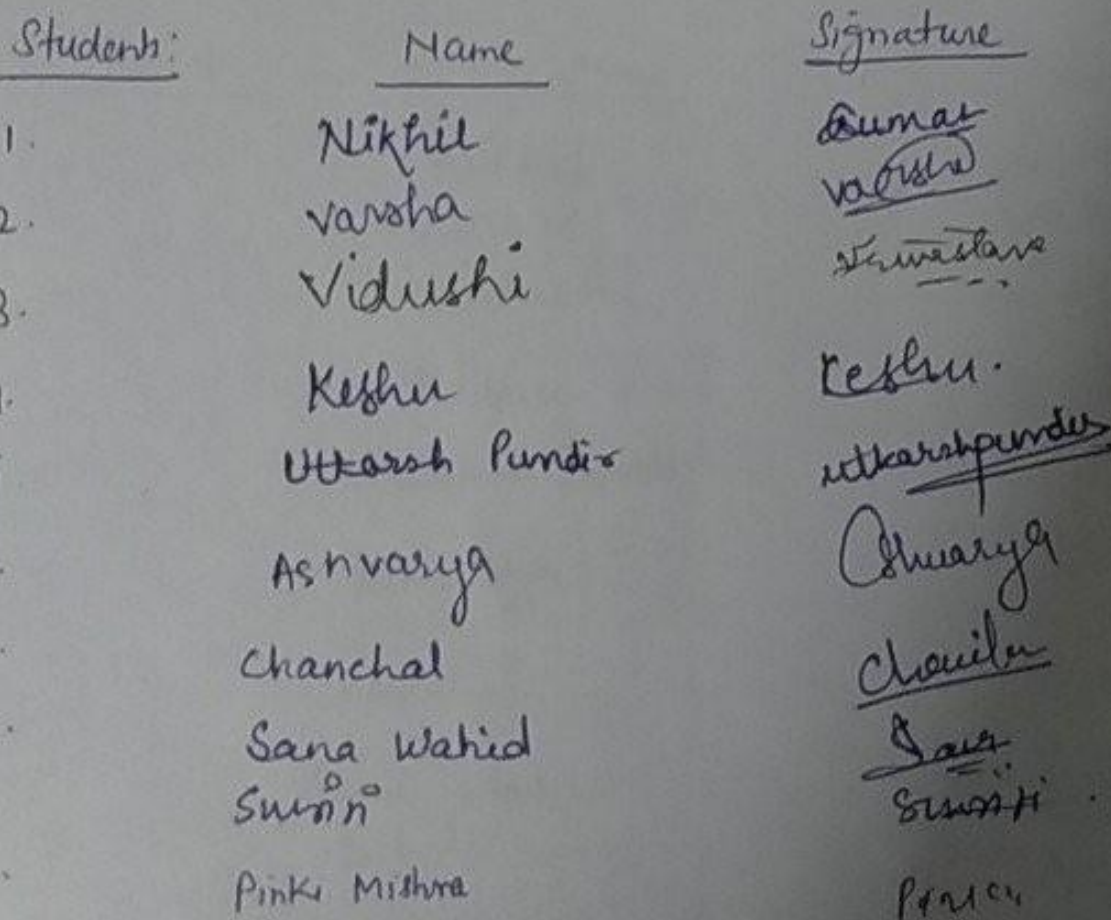 Students: Name Signature
1. Nikhil Kumar
2. Varsha Varsha
3. Vidushi
Keshu Keshu.
Utkarsh Pundir utkarshpundir
Ashvarya Ashwarya
Chanchal
Sana Wahid Sana
Pinki Mishra